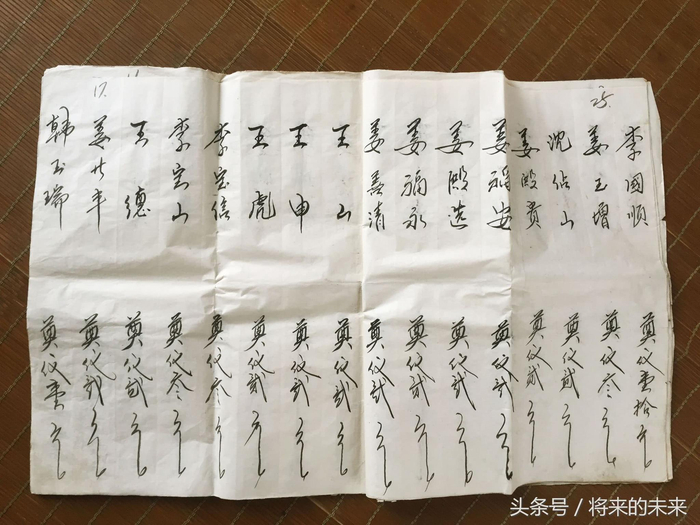 李國順 奠仪壹拾元
姜玉增 奠仪叁元
沈佔山 奠仪贰元
姜殿贡 奠仪贰元
姜福安 奠仪贰元
姜殿选 奠仪贰元
姜福永 奠仪贰元
姜善清 奠仪贰元
王山 奠仪贰元
王申 奠仪贰元
王虎 奠仪贰元
李宝信 奠仪叁元
李宝山 奠仪叁元
王德 奠仪贰元
姜 年 奠仪贰元
韩玉瑞 奠仪壹元
17.
头条号 / 将来的未来